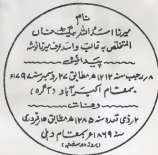 نام
میرزا اسد اللہ بیگ خان
المتخلص بہ غالب و اسد عرف میرزا نوشہ
پیدائش
۸ رجب سنہ ۱۲۱۲ ھ مطابق ۲۷ دسمبر سنہ ۱۷۹۷ء
بمقام اکبرآباد (آگرہ)
وفات
۲ ذی قعدہ سنہ ۱۲۸۵ ھ مطابق ۱۵ فروری
سنہ ۱۸۶۹ء بمقام دہلی
(بروز دوشنبہ)